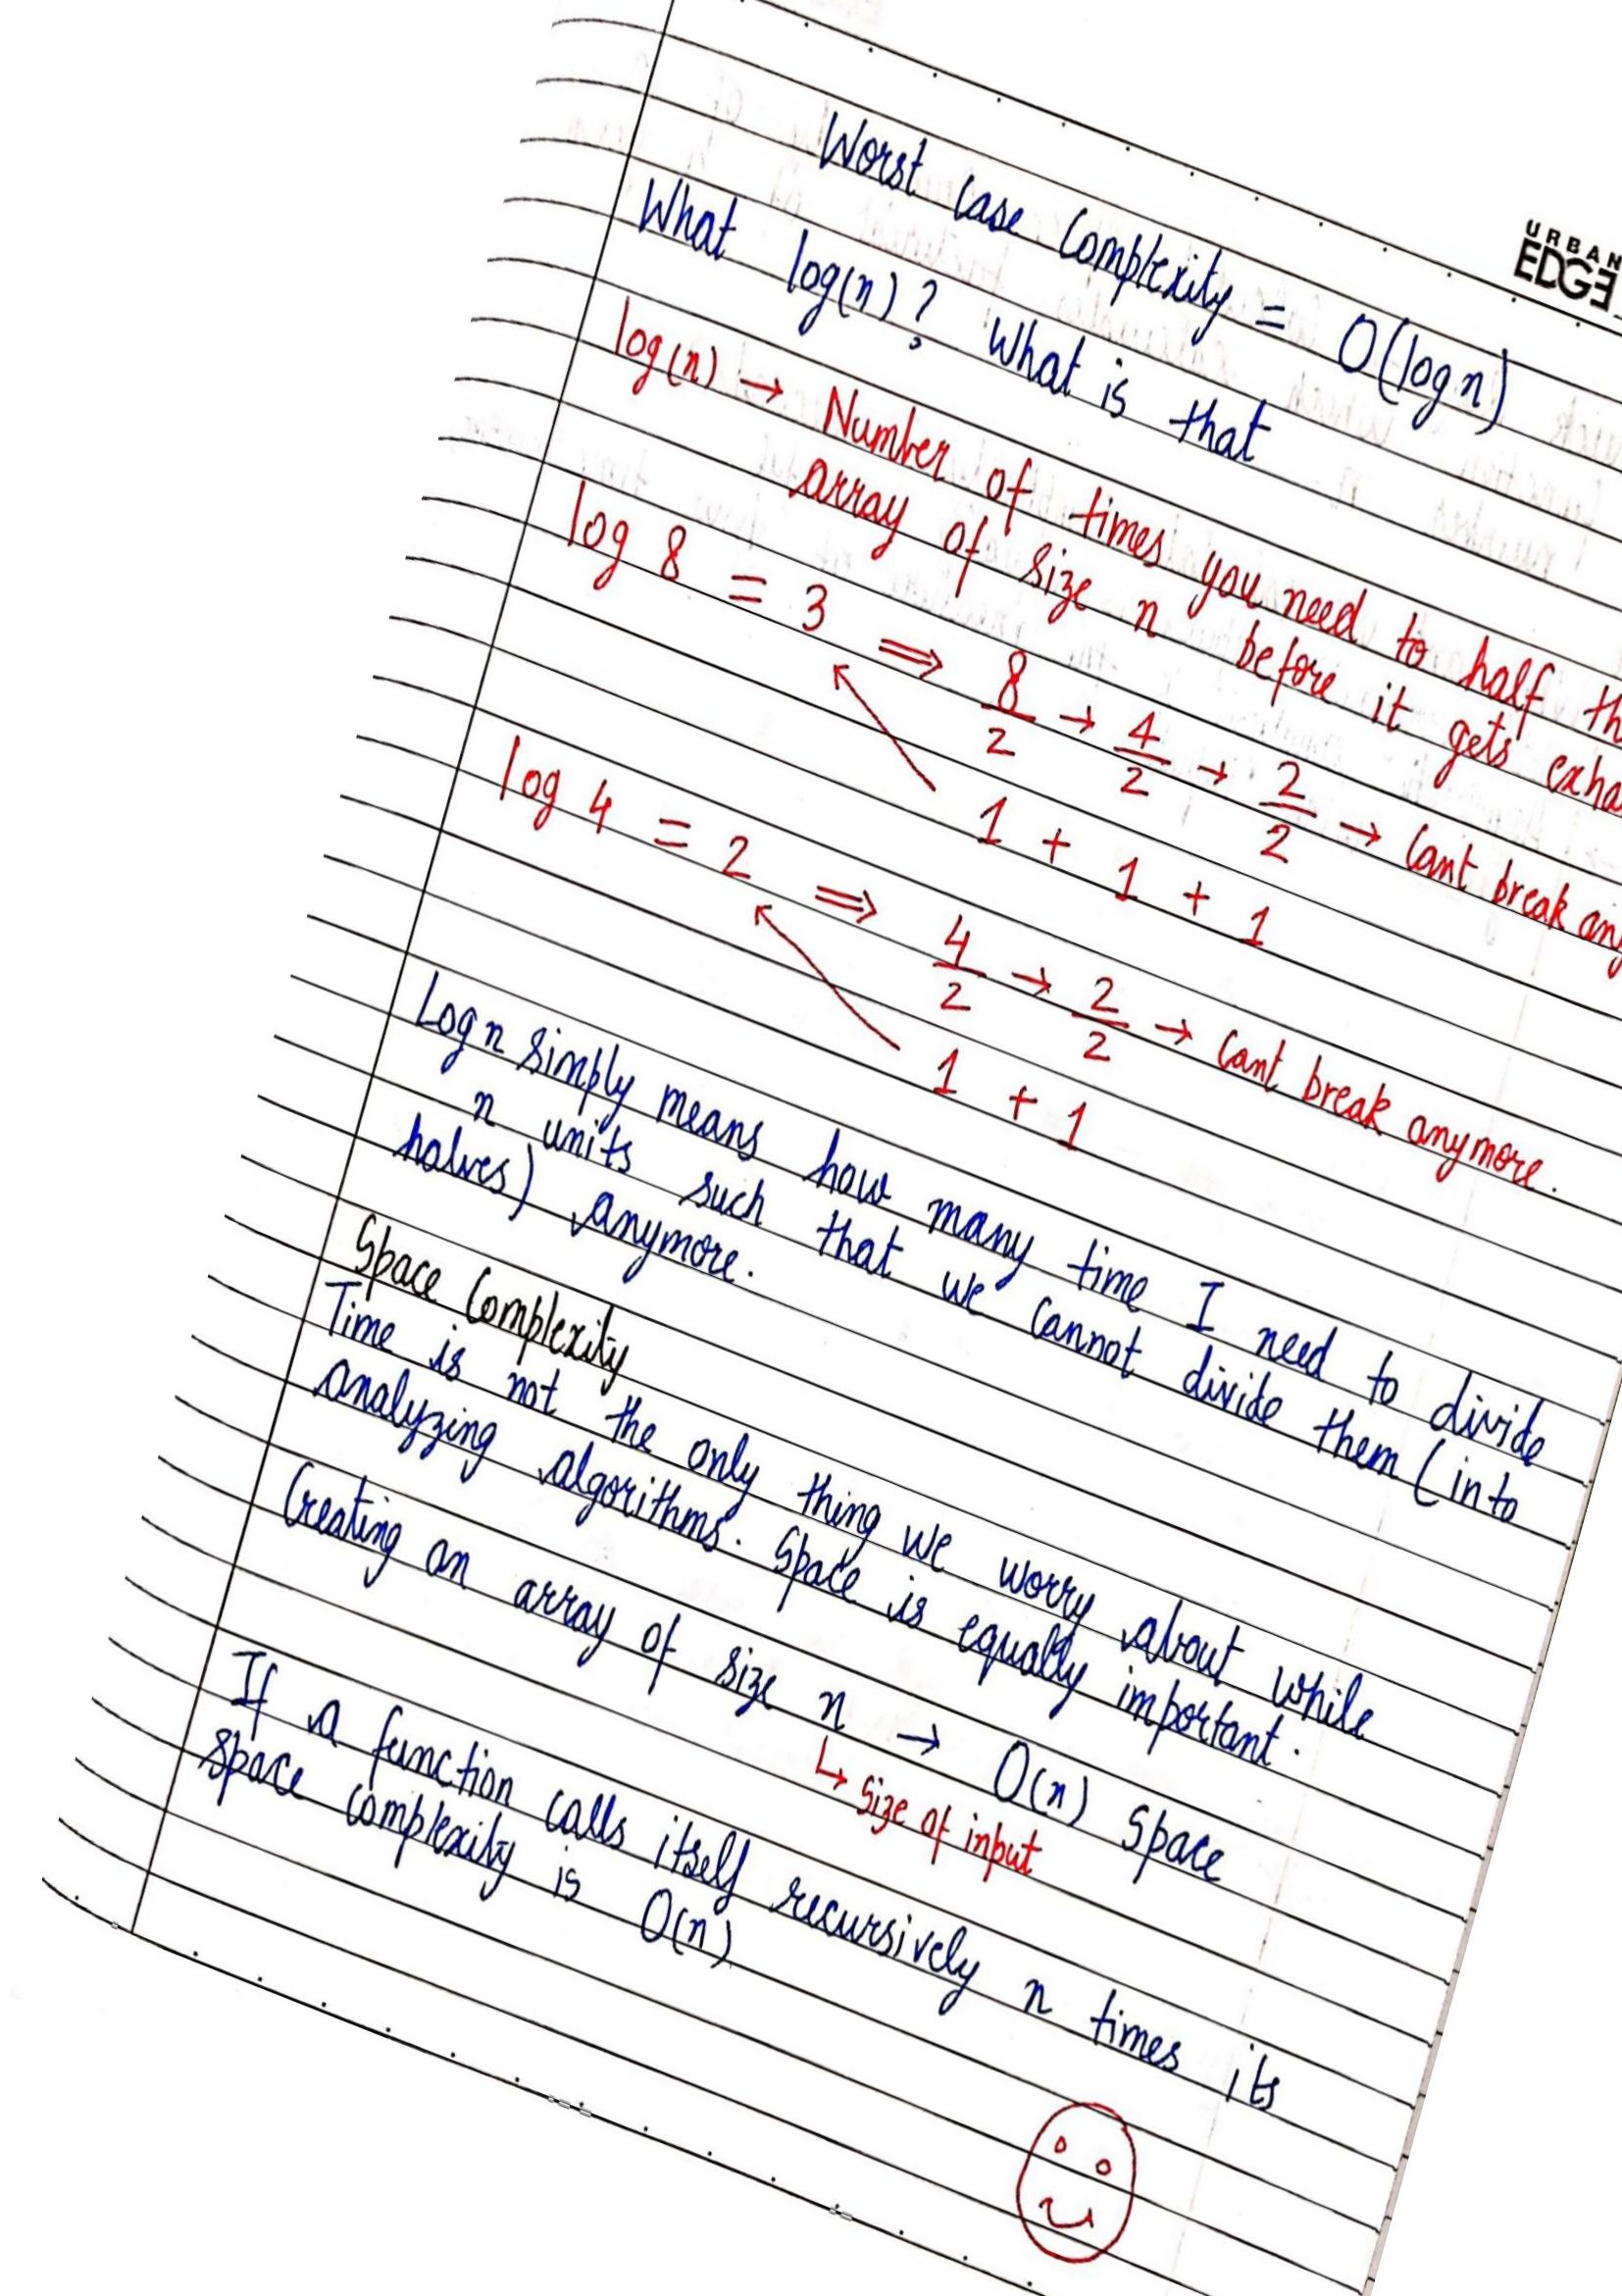 URBAN
EDGE
Worst Case Complexity = O(log n)
What log(n)? What is that
log(n) → Number of times you need to half
array of size n before it gets
log 8 = 3 ⇒ 8/2 → 4/2 → 2/2 → Cant break
1 + 1 + 1
log 4 = 2 ⇒ 4/2 → 2/2 → Cant break anymore.
1 + 1
Log n simply means how many time I need to divide
n units such that we cannot divide them (into
halves) anymore.
Space Complexity
Time is not the only thing we worry about while
analyzing algorithms. Space is equally important.
Creating an array of size n → O(n) Space
↳ Size of input
If a function calls itself recursively n times its
space complexity is O(n)